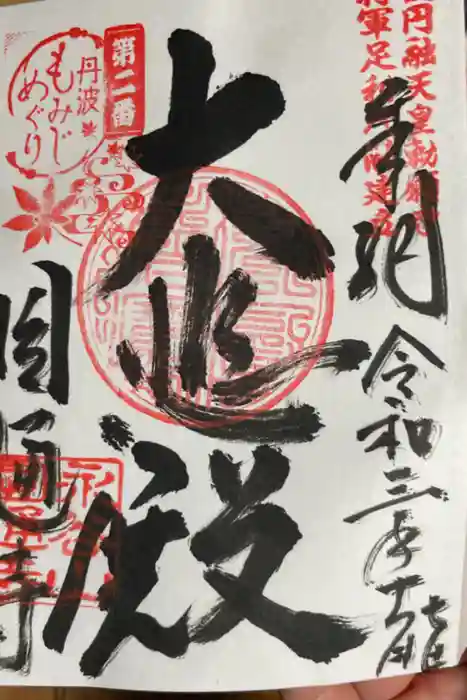 円融天皇勅願
将軍足利
奉拝
令和三年十一月
大悲殿
第二番
丹波
もみじ
めぐり
圓通寺